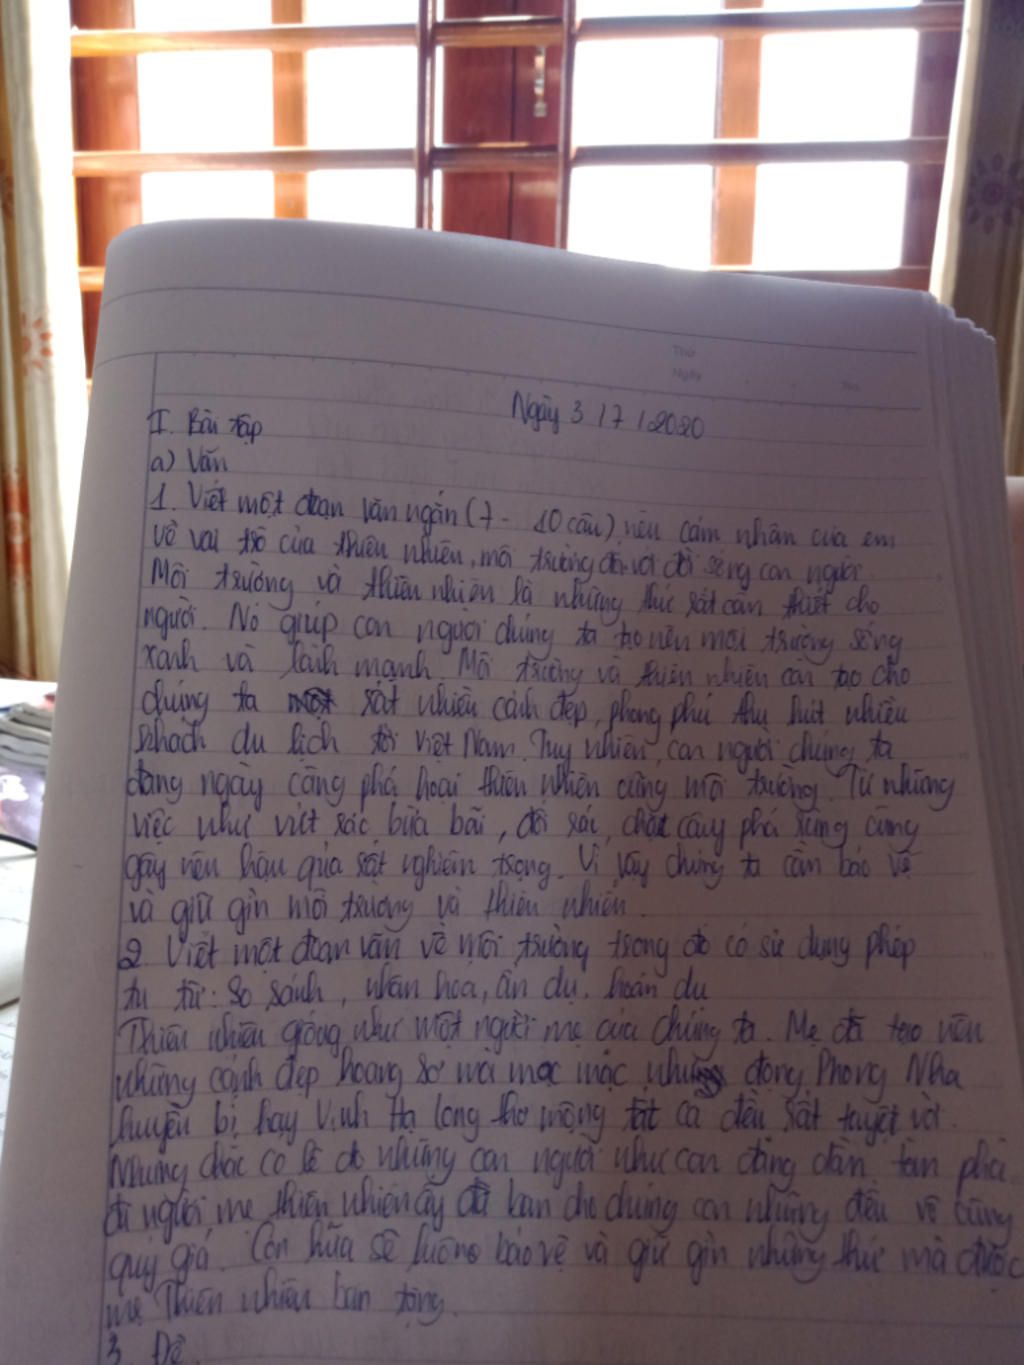 Thứ
Ngày No.
Ngày 3 / 7 / 2020
I. Bài tập
a) Văn
1. Viết một đoạn văn ngắn (7 - 10 câu) nêu cảm nhận của em
về vai trò của thiên nhiên, môi trường đối với đời sống con người.
Môi trường và thiên nhiên là những thứ rất cần thiết cho
người. Nó giúp con người chúng ta tạo nên môi trường sống
xanh và lành mạnh. Môi trường và thiên nhiên còn tạo cho
chúng ta rất nhiều cảnh đẹp, phong phú thu hút nhiều
khách du lịch tới Việt Nam. Tuy nhiên, con người chúng ta
đang ngày càng phá hoại thiên nhiên cũng môi trường. Từ những
việc như vứt rác bừa bãi, đốt rác, chặt cây phá rừng cũng
gây nên hậu quả rất nghiêm trọng. Vì vậy chúng ta cần bảo vệ
và giữ gìn môi trường và thiên nhiên.
2. Viết một đoạn văn về môi trường trong đó có sử dụng phép
tu từ: So sánh, nhân hóa, ẩn dụ, hoán dụ
Thiên nhiên giống như một người mẹ của chúng ta. Mẹ đã tạo nên
những cảnh đẹp hoang sơ mà mộc mạc, như động Phong Nha
huyền bí hay Vịnh Hạ Long thơ mộng tất cả đều rất tuyệt vời.
Nhưng chắc có lẽ do những con người như con đang dần tàn phá
đi người mẹ thiên nhiên ấy đã ban cho chúng con những điều vô cùng
quý giá. Con hứa sẽ luôn bảo vệ và giữ gìn những thứ mà được
mẹ Thiên nhiên ban tặng.
3. Đề